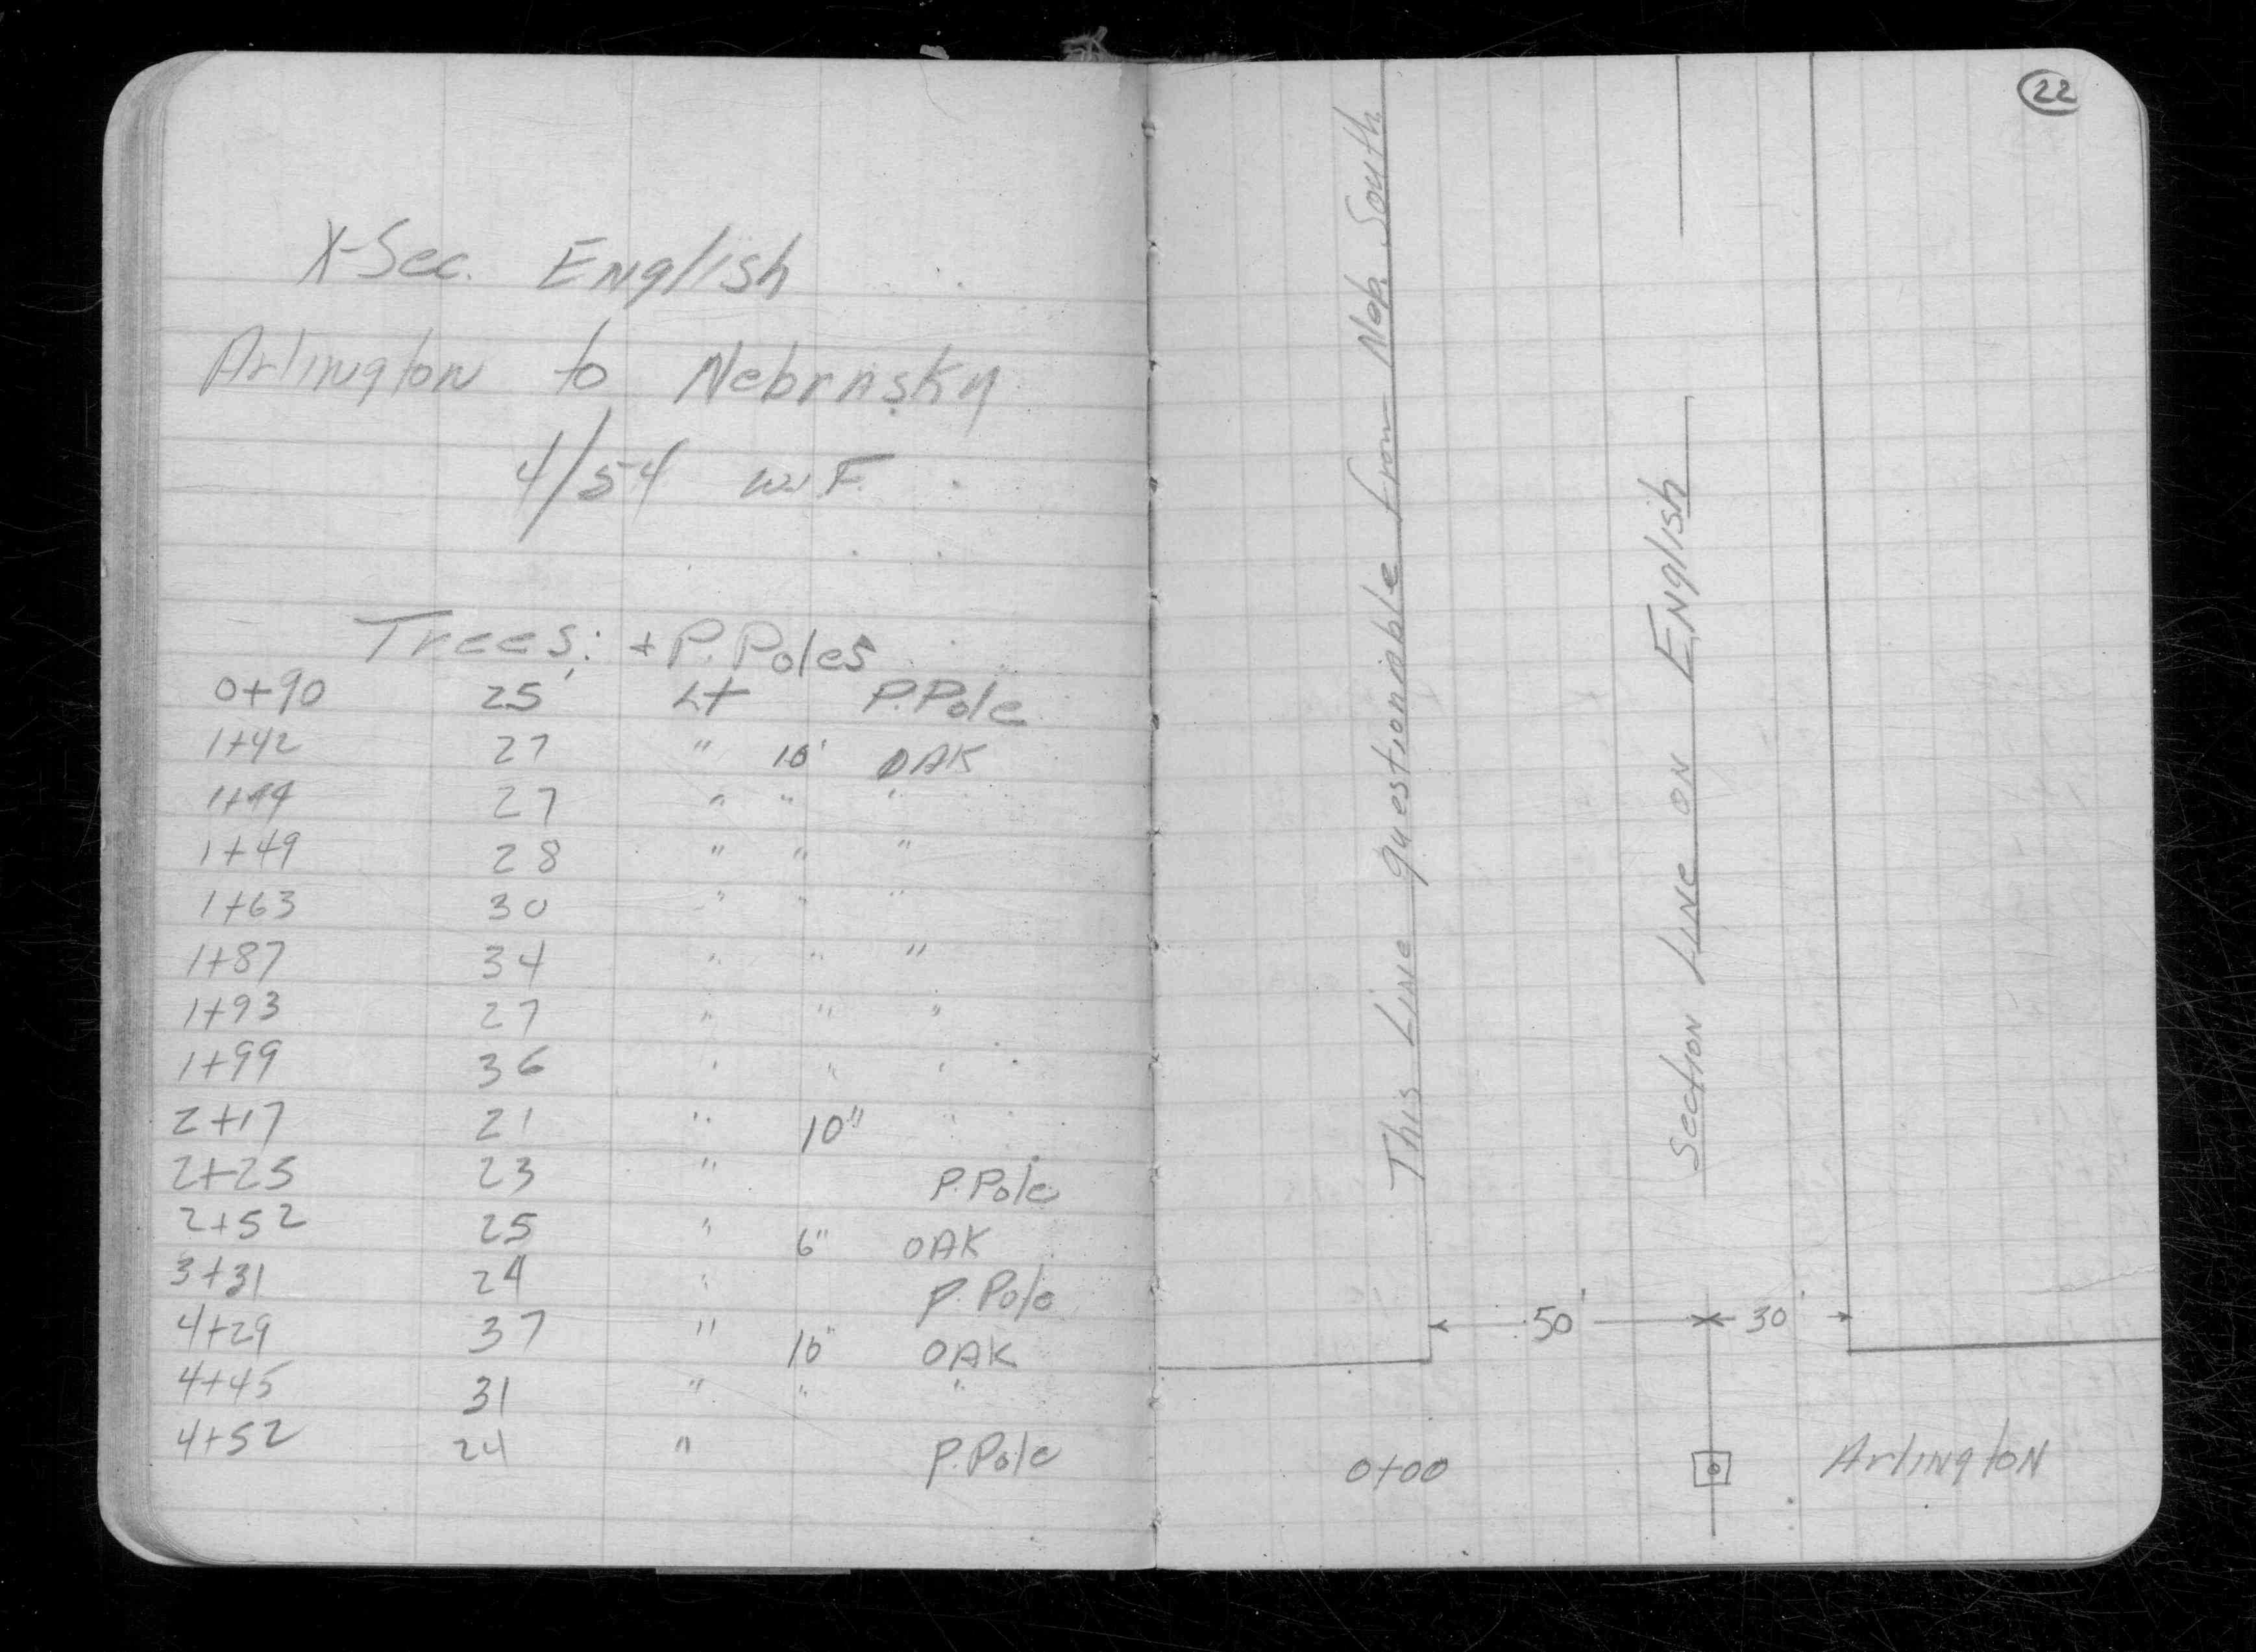 X-Sec. English
Arlington to Nebraska
4/54 W.F.
Trees: + P. Poles
0+90 25' Lt P.Pole
1+42 27 " 10" OAK
1+44 27 " " "
1+49 28 " " "
1+63 30 " " "
1+87 34 " " "
1+93 27 " " "
1+99 36 " " "
2+17 21 " 10" "
2+25 23 " P.Pole
2+52 25 " 6" OAK
3+31 24 " P.Pole
4+29 37 " 10" OAK
4+45 31 " " "
4+52 24 " P.Pole
22
This Line questionable from Neb. South
Section Line on English
50' 30'
0+00 Arlington